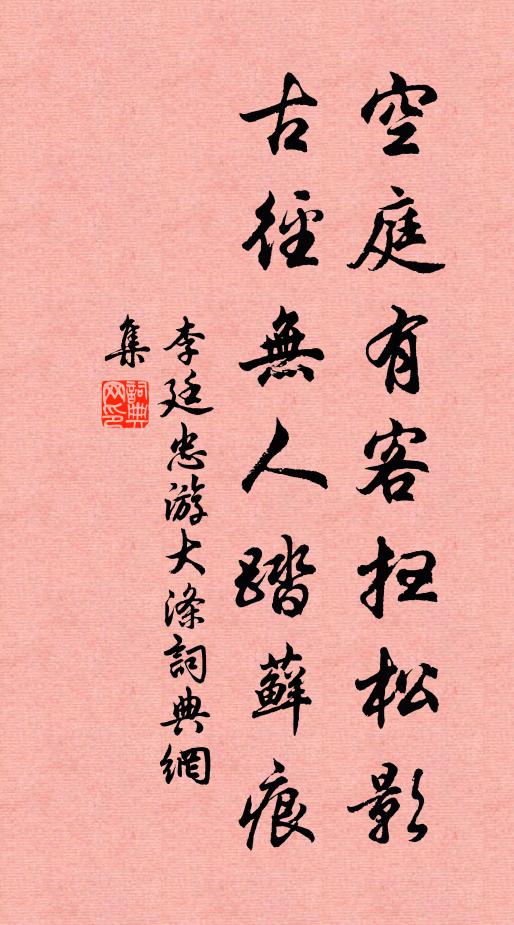 空庭有客扫松影
古徑無人踏蘚痕
李廷忠游大滌詞典網
集
詞典網印